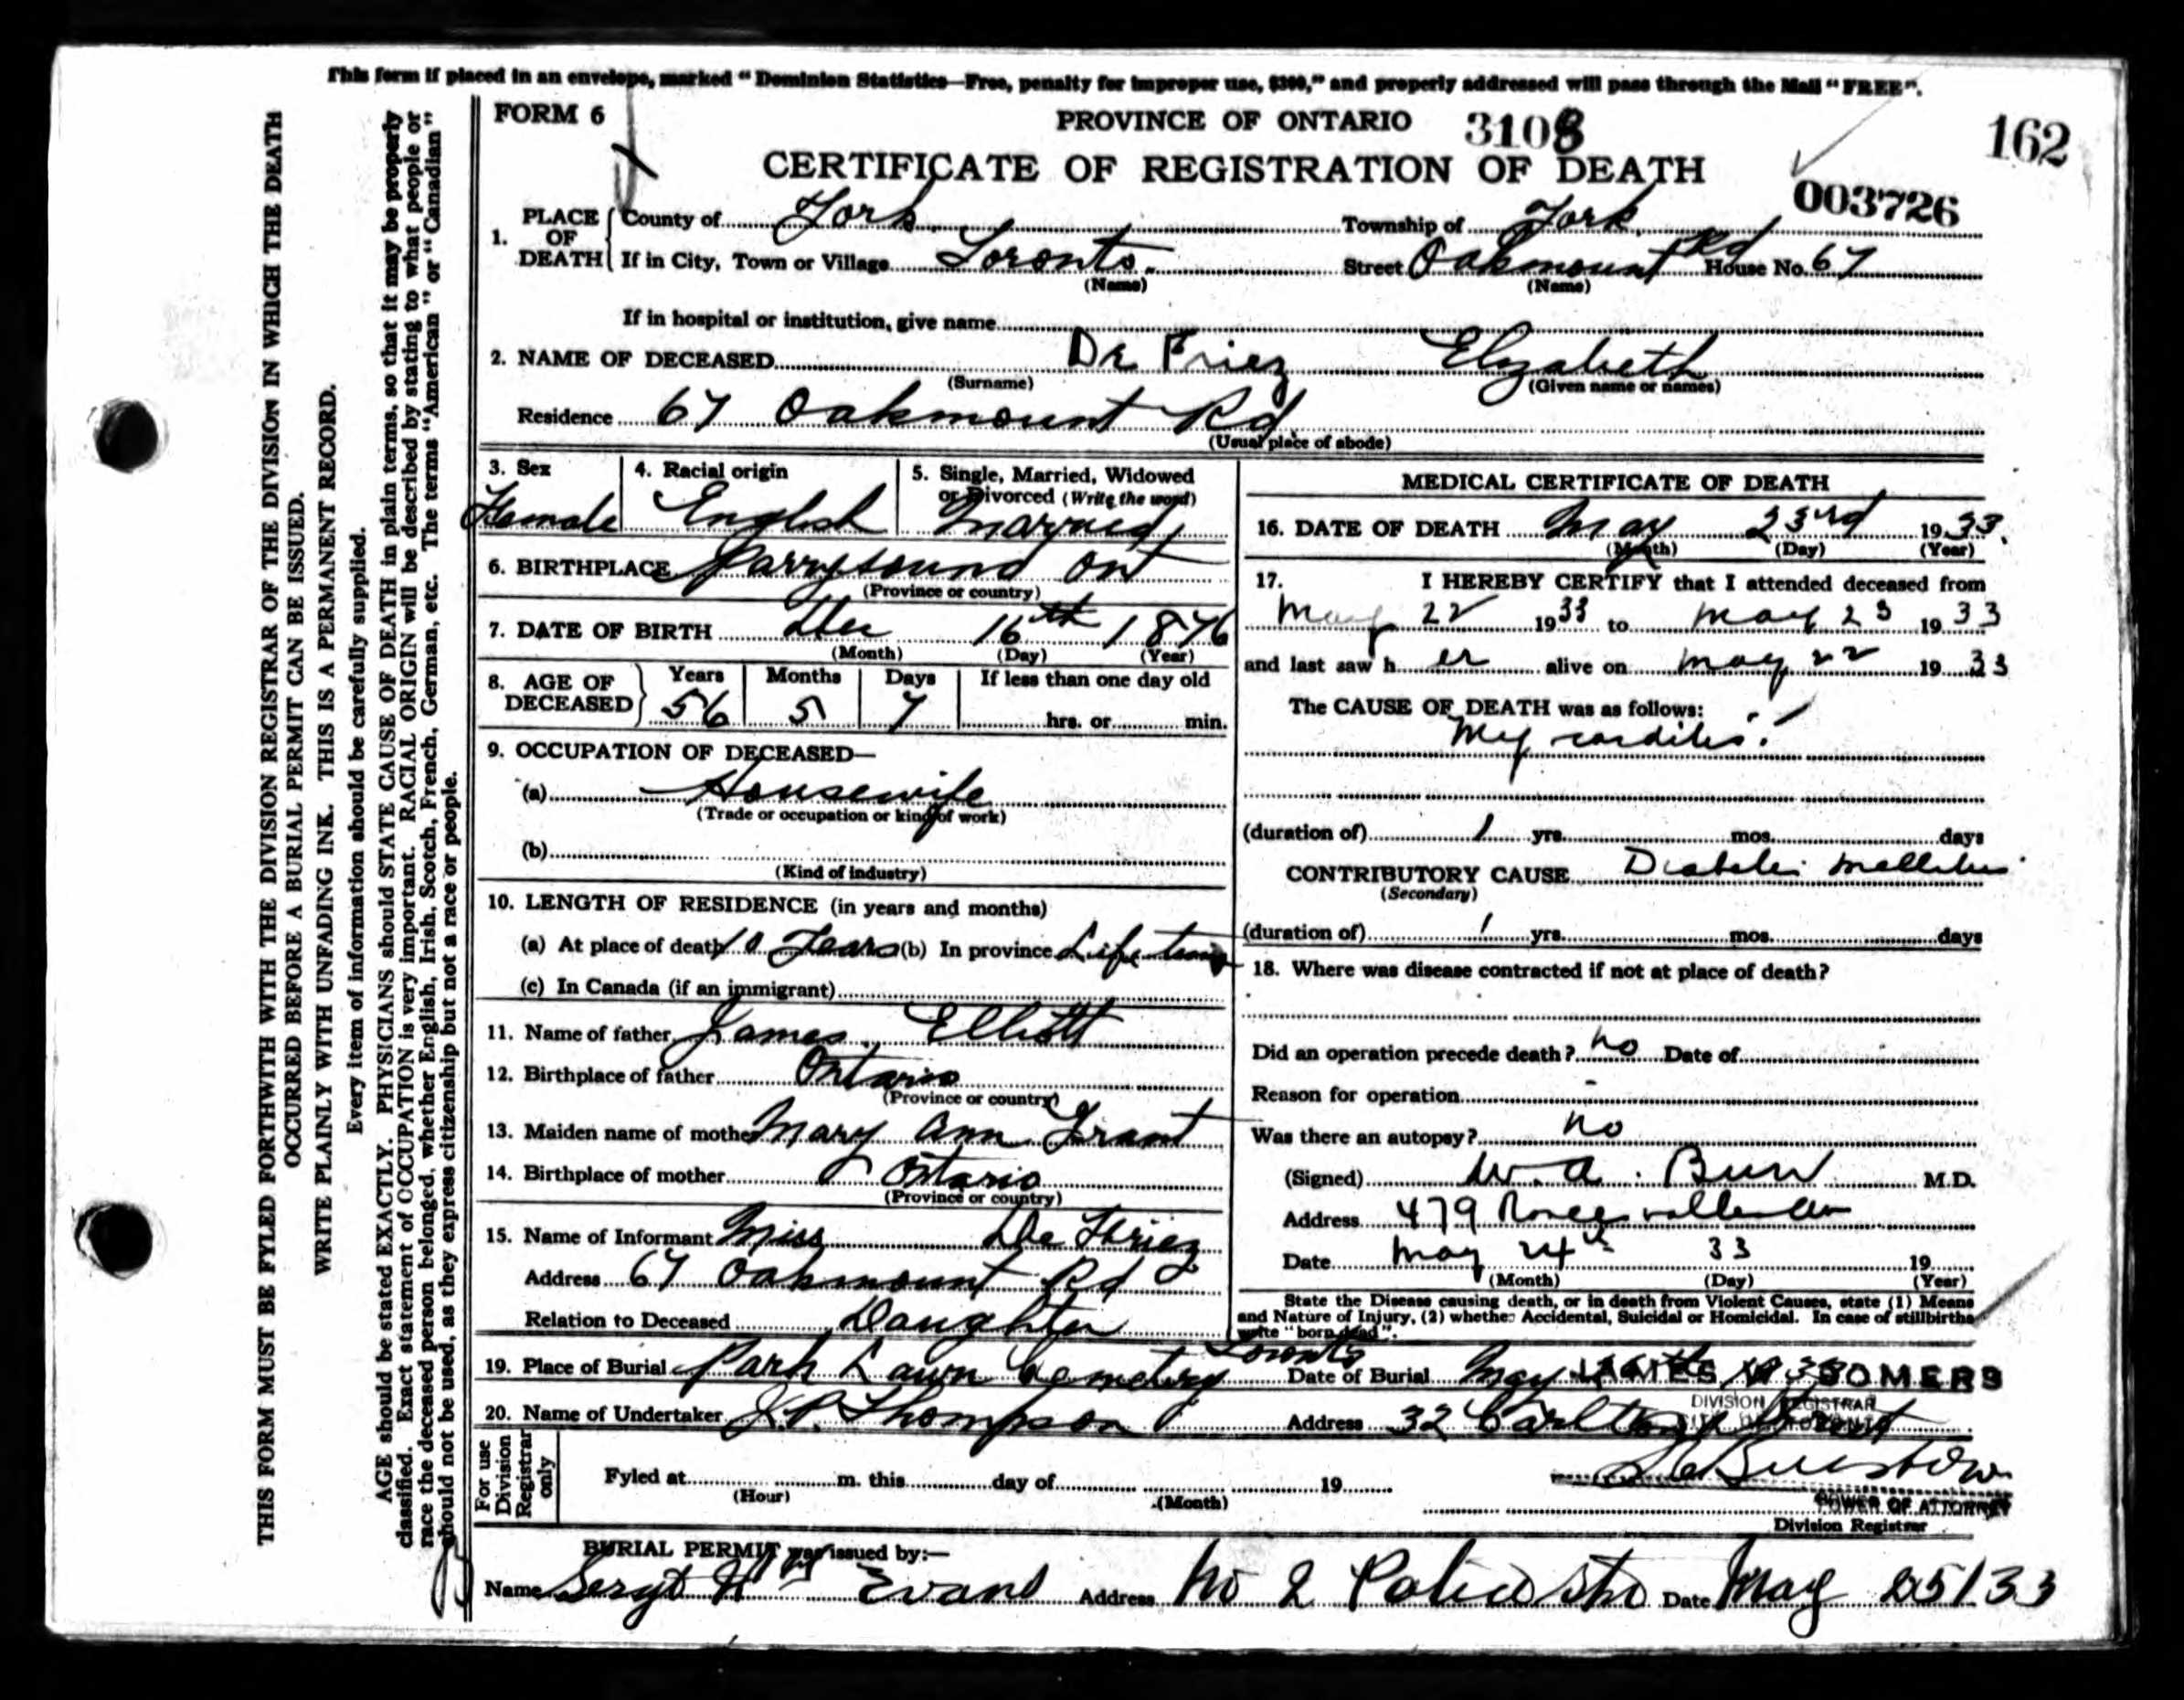 This form if placed in an envelope, marked "Dominion Statistics—Free, penalty for improper use, $300," and properly addressed will pass through the Mail "FREE".
FORM 6
PROVINCE OF ONTARIO 3108
162
CERTIFICATE OF REGISTRATION OF DEATH
003726
1. PLACE OF DEATH County of York Township of York
If in City, Town or Village Toronto. Street Oakmount Rd House No. 67
(Name) (Name)
If in hospital or institution, give name
2. NAME OF DECEASED De Friez Elizabeth
(Surname) (Given name or names)
Residence 67 Oakmount Rd
(Usual place of abode)
3. Sex Female
4. Racial origin English
5. Single, Married, Widowed or Divorced (Write the word) Married
6. BIRTHPLACE Parrysound Ont
(Province or country)
7. DATE OF BIRTH Dec 16th 1876
(Month) (Day) (Year)
8. AGE OF DECEASED Years 56 Months 5 Days 7 If less than one day old hrs. or min.
9. OCCUPATION OF DECEASED—
(a) Housewife
(Trade or occupation or kind of work)
(b)
(Kind of industry)
10. LENGTH OF RESIDENCE (in years and months)
(a) At place of death 10 Years (b) In province Life time
(c) In Canada (if an immigrant)
11. Name of father James Elliott
12. Birthplace of father Ontario
(Province or country)
13. Maiden name of mother Mary Ann Grant
14. Birthplace of mother Ontario
(Province or country)
15. Name of Informant Miss De Friez
Address 67 Oakmount Rd
Relation to Deceased Daughter
MEDICAL CERTIFICATE OF DEATH
16. DATE OF DEATH May 23rd 1933.
(Month) (Day) (Year)
17. I HEREBY CERTIFY that I attended deceased from
May 22 1933 to May 23 1933
and last saw her alive on May 22 1933
The CAUSE OF DEATH was as follows:
Myocarditis
(duration of) 1 yrs. mos. days
CONTRIBUTORY CAUSE Diabetes Mellitus
(Secondary)
(duration of) 1 yrs. mos. days
18. Where was disease contracted if not at place of death?
Did an operation precede death? no Date of
Reason for operation
Was there an autopsy? no
(Signed) W. A. Burr M.D.
Address 479 Roncesvalles Av
Date May 24th 33 19
(Month) (Day) (Year)
State the Disease causing death, or in death from Violent Causes, state (1) Means
and Nature of Injury, (2) whether Accidental, Suicidal or Homicidal. In case of stillbirths
write "born dead".
19. Place of Burial Park Lawn Cemetery Toronto Date of Burial May
JAMES SOMERS
DIVISION REGISTRAR
20. Name of Undertaker J.P. Thompson Address 32 Carlton Street
For use Division Registrar only
Fyled at m. this day of 19
(Hour) (Month)
POWER OF ATTORNEY
Division Registrar
BURIAL PERMIT was issued by:—
Name Sergt Evans Address No 2 Police Stn Date May 25/33
THIS FORM MUST BE FYLED FORTHWITH WITH THE DIVISION REGISTRAR OF THE DIVISION IN WHICH THE DEATH
OCCURRED BEFORE A BURIAL PERMIT CAN BE ISSUED.
WRITE PLAINLY WITH UNFADING INK. THIS IS A PERMANENT RECORD.
Every item of information should be carefully supplied.
AGE should be stated EXACTLY. PHYSICIANS should STATE CAUSE OF DEATH in plain terms, so that it may be properly
classified. Exact statement of OCCUPATION is very important. RACIAL ORIGIN will be described by stating to what people or
race the deceased person belonged, whether English, Irish, Scotch, French, German, etc. The terms "American" or "Canadian"
should not be used, as they express citizenship but not a race or people.